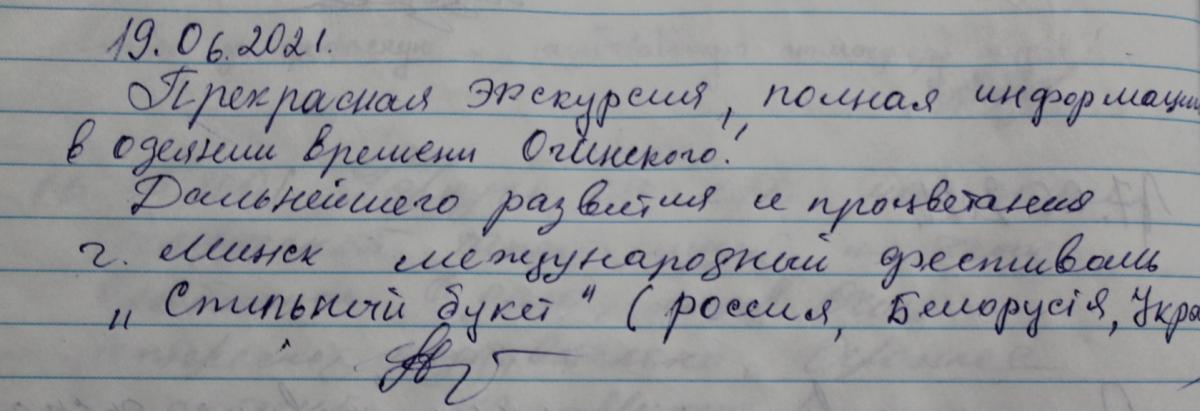 19.06.2021.
Прекрасная экскурсия, полная информации,
в одеянии времени Огинского!
Дальнейшего развития и процветания
г. Минск международный фестиваль
„Стильный букет" (Россия, Белорусія, Укра